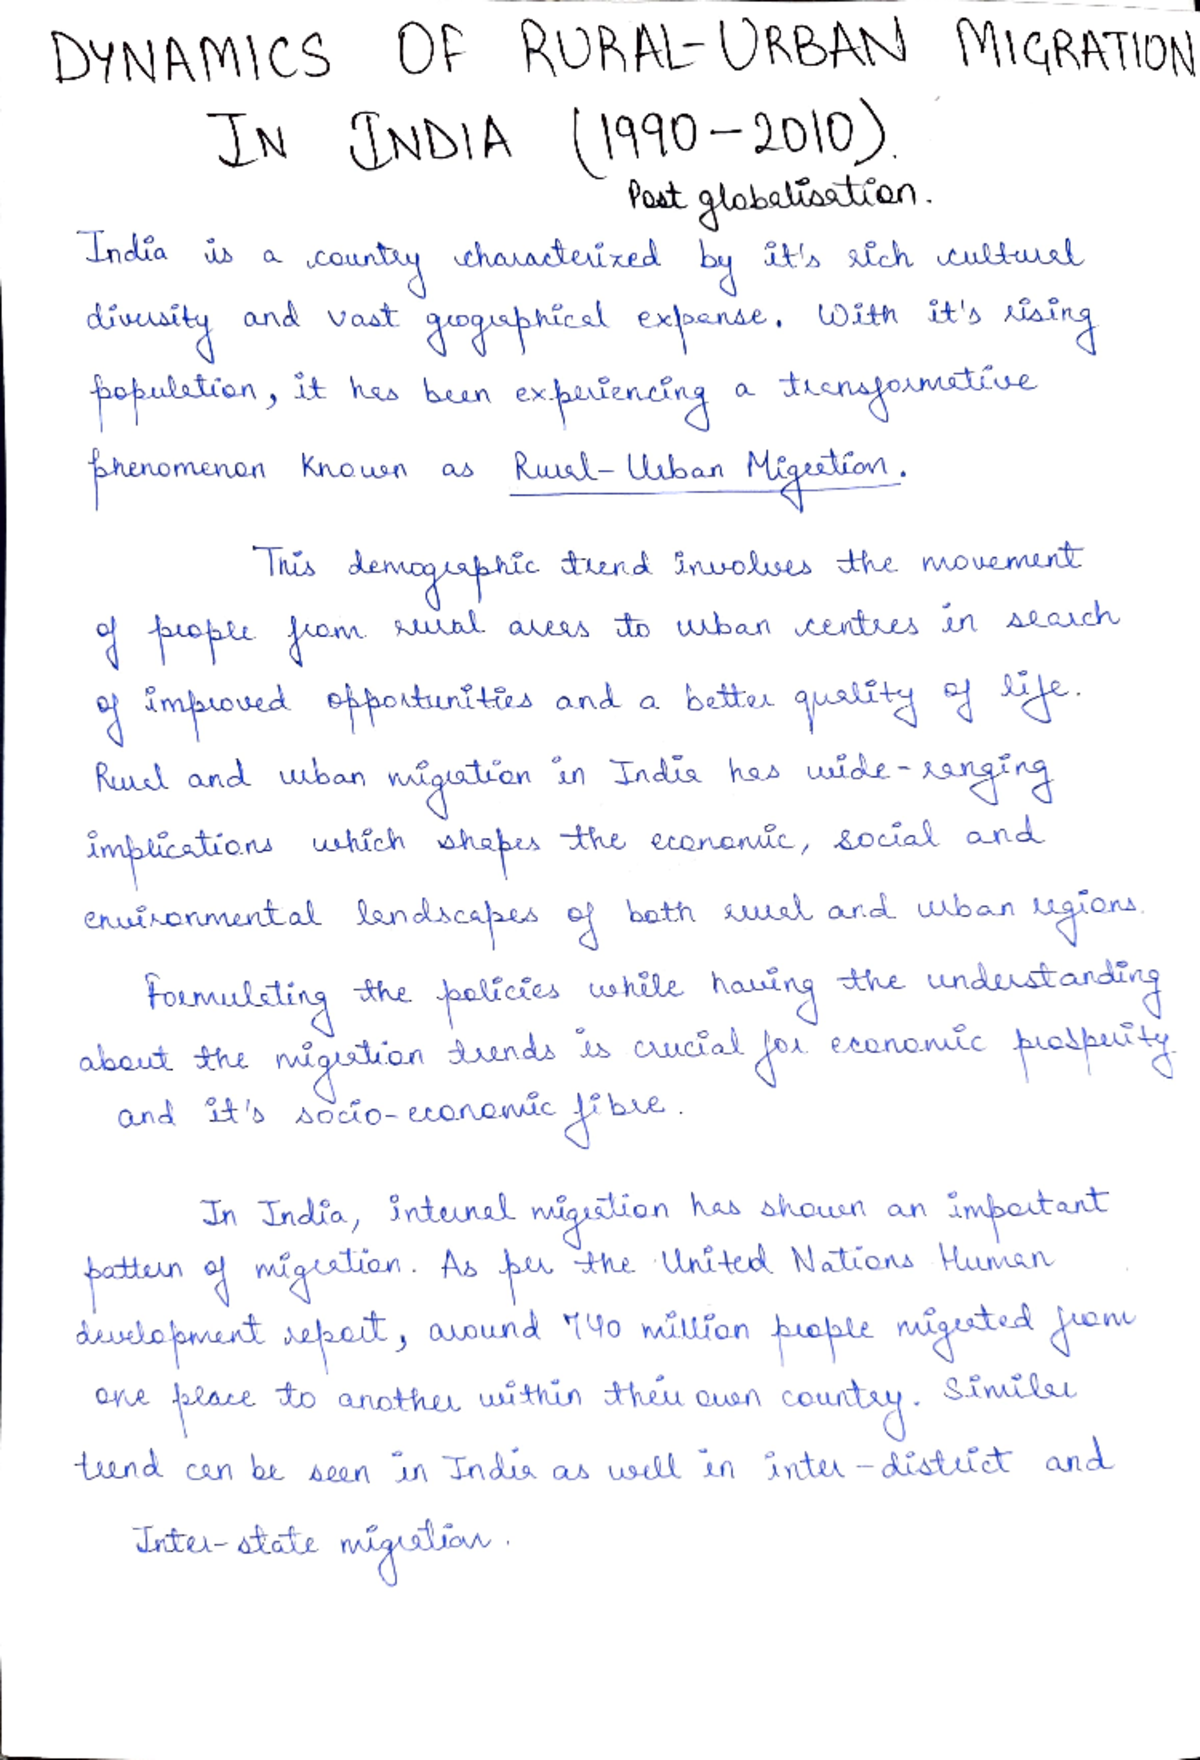 DYNAMICS OF RURAL-URBAN MIGRATION
IN INDIA (1990-2010).
Post globalisation.
India is a country characterized by it's rich cultural
diversity and vast geographical expanse. With it's rising
population, it has been experiencing a transformative
phenomenon known as Rural-Urban Migration.
This demographic trend involves the movement
of people from rural areas to urban centres in search
of improved opportunities and a better quality of life.
Rural and urban migration in India has wide-ranging
implications which shapes the economic, social and
environmental landscapes of both rural and urban regions.
Formulating the policies while having the understanding
about the migration trends is crucial for economic prosperity
and it's socio-economic fibre.
In India, internal migration has shown an important
pattern of migration. As per the United Nations Human
development report, around 740 million people migrated from
one place to another within their own country. Similar
trend can be seen in India as well in inter-district and
Inter-state migration.